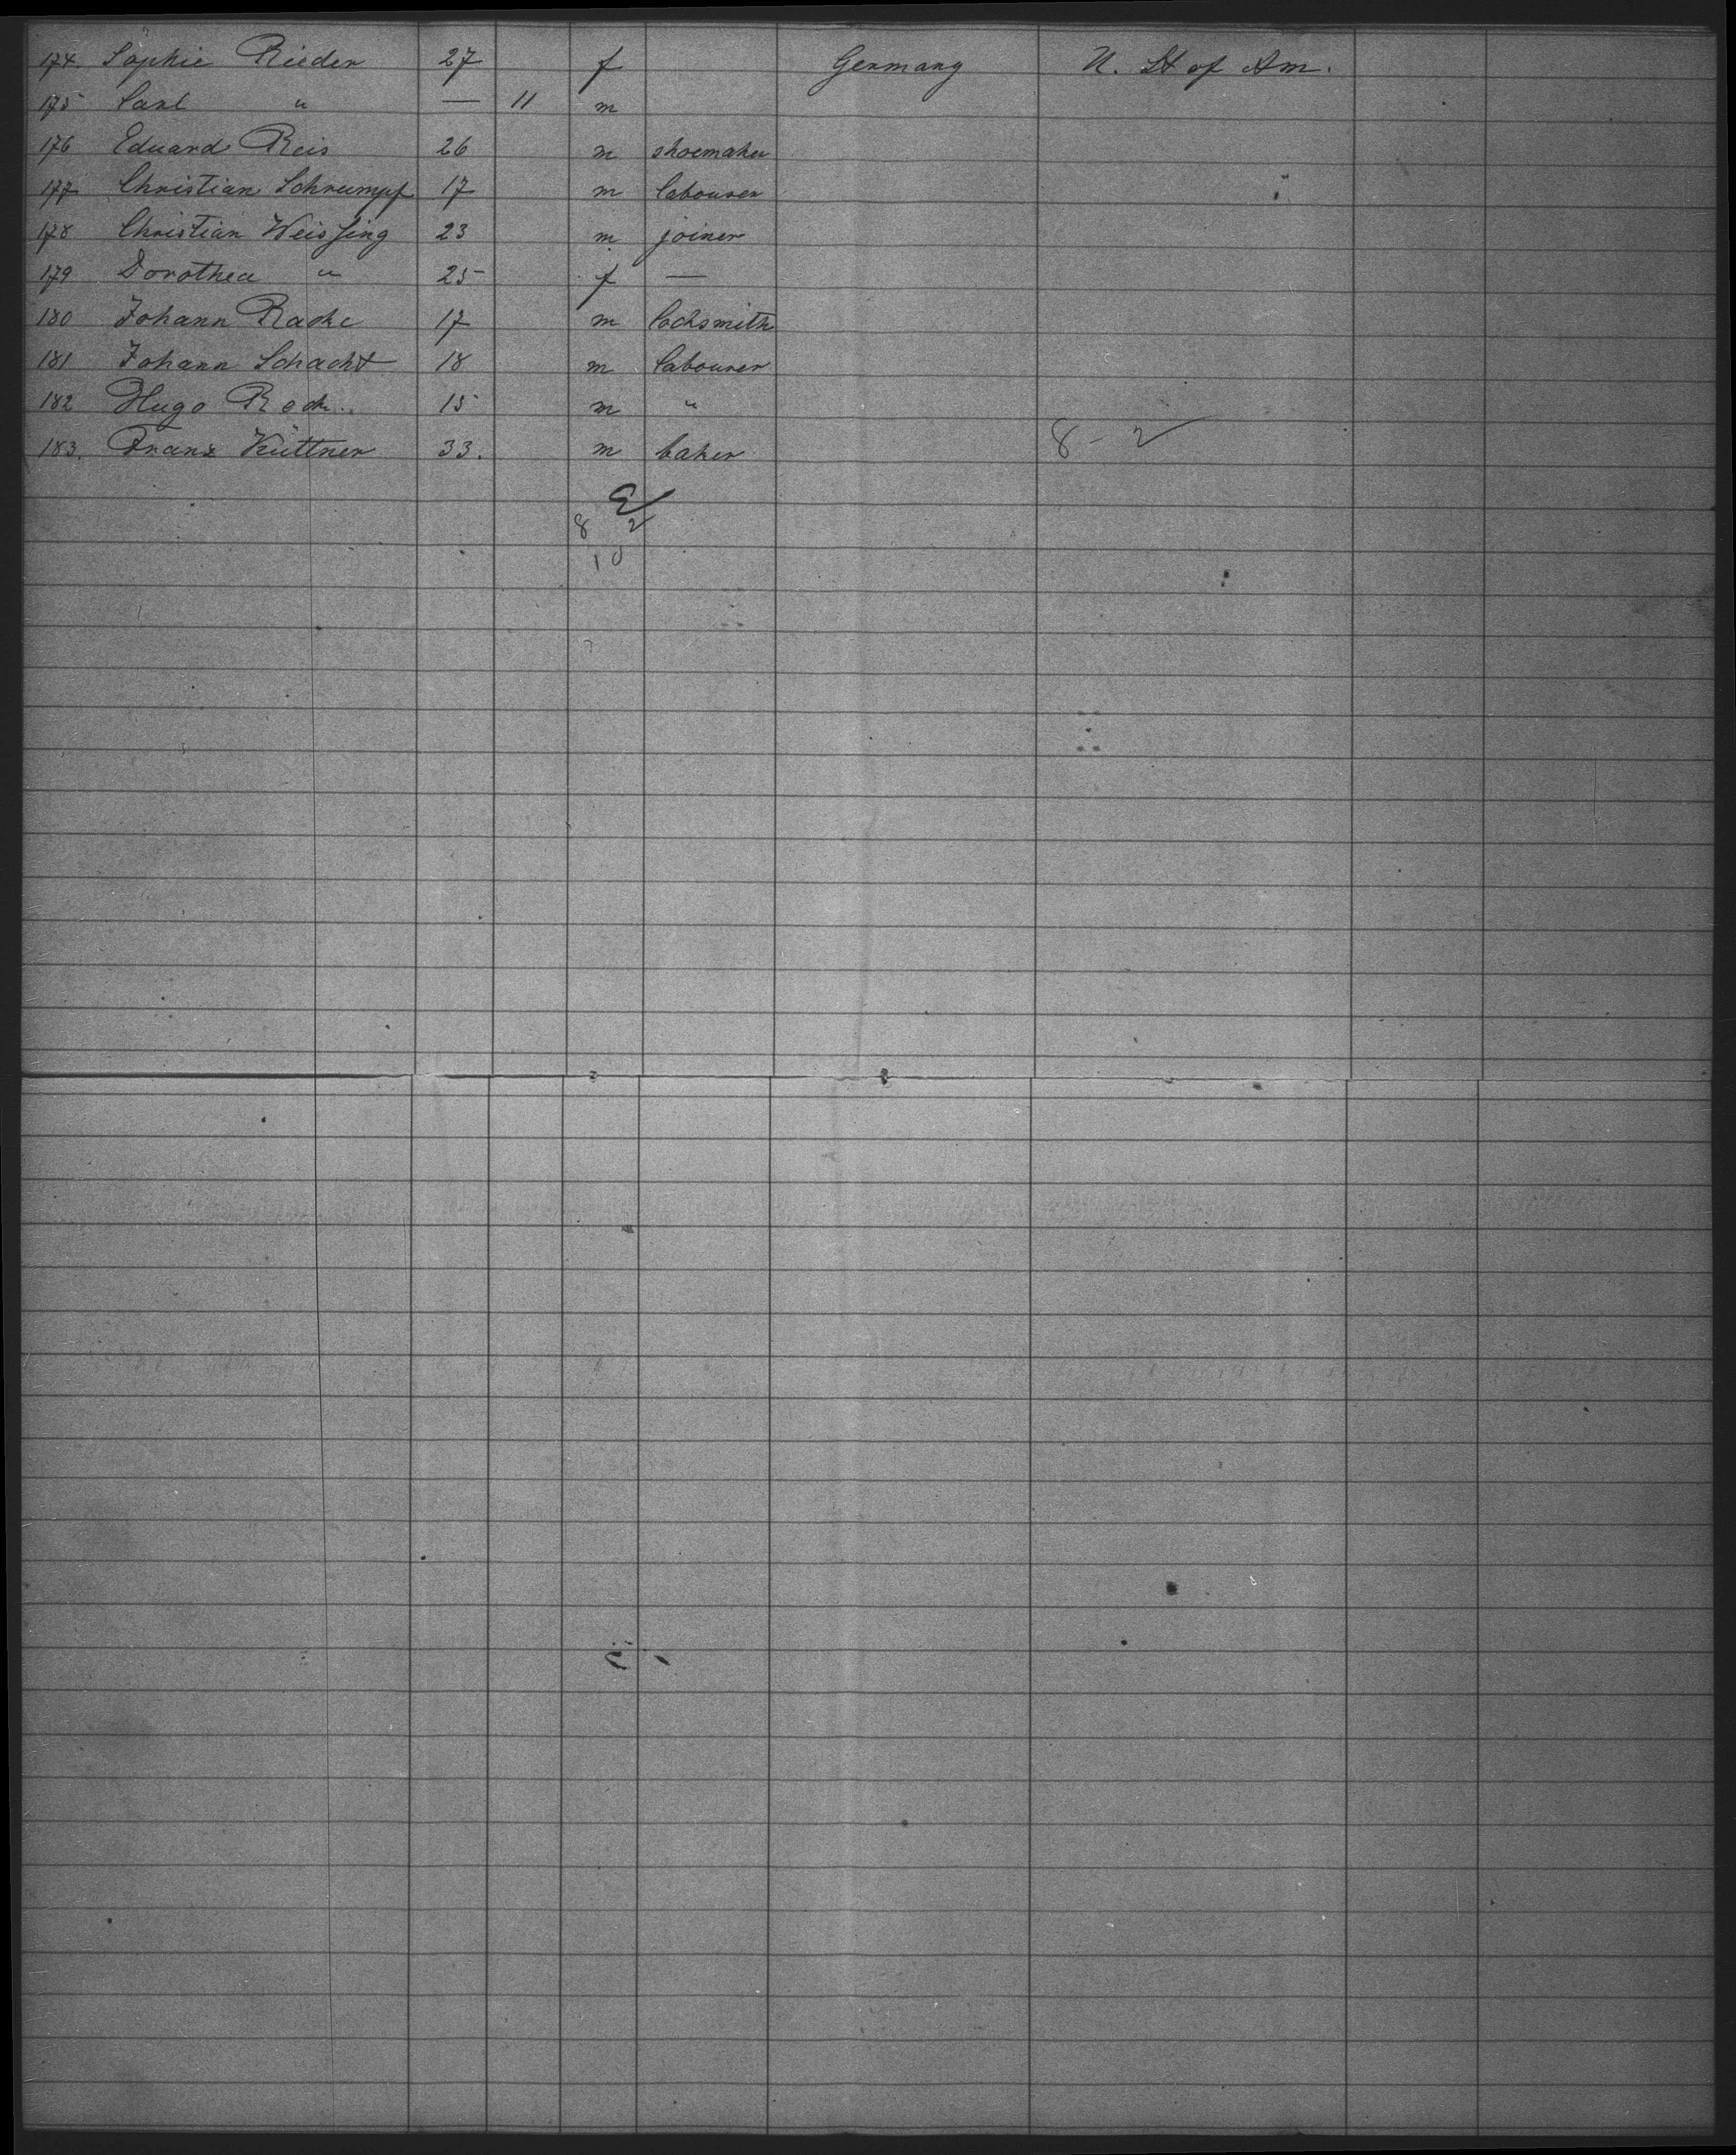 174. Sophie Rieder 27 f Germany U. St of Am.
175 Carl " — 11 m
176 Eduard Reis 26 m shoemaker
177 Christian Schrumpf 17 m labourer
178 Christian Weissing 23 m joiner
179 Dorothea " 25 f —
180 Johann Radke 17 m locksmith
181 Johann Schacht 18 m labourer
182 Hugo 15 m "
183. Franz Küttner 33. m baker 8 - 2
8 2
10